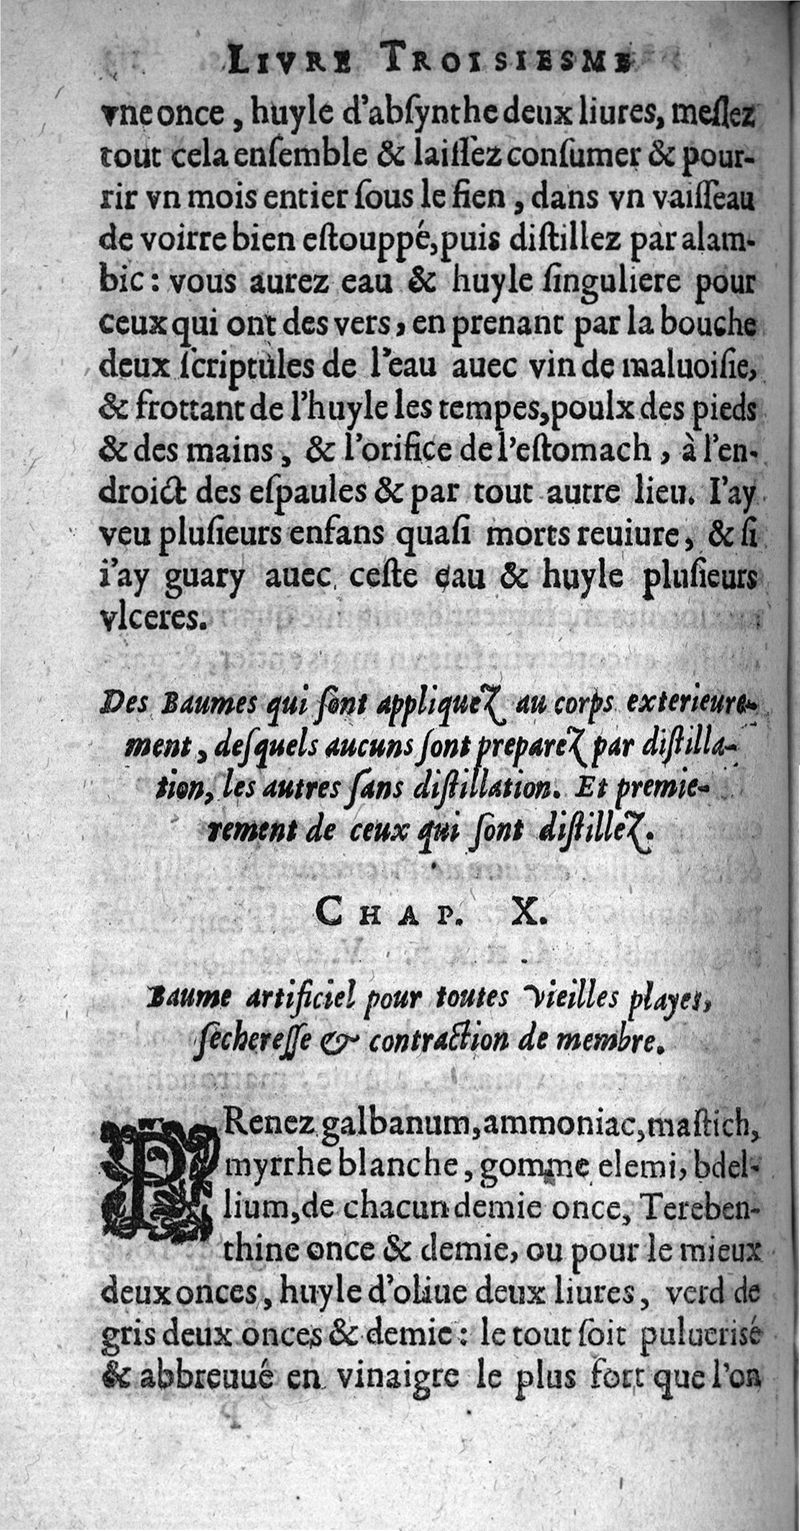 LIVRE TROISIESME
vne once, huyle d'abſynthe deux liures, meſlez
tout cela enſemble & laiſſez conſumer & pour-
rir vn mois entier ſous le fien, dans vn vaiſſeau
de voirre bien eſtouppé, puis diſtillez par alam-
bic: vous aurez eau & huyle ſinguliere pour
ceux qui ont des vers, en prenant par la bouche
deux ſcriptules de l'eau auec vin de maluoiſie,
& frottant de l'huyle les tempes, poulx des pieds
& des mains, & l'orifice de l'eſtomach, à l'en-
droict des eſpaules & par tout autre lieu. I'ay
veu pluſieurs enfans quaſi morts reuiure, & ſi
i'ay guary auec ceſte eau & huyle pluſieurs
vlceres.
Des Baumes qui ſont appliquez au corps exterieure-
ment, deſquels aucuns ſont preparez par diſtilla-
tion, les autres ſans diſtillation. Et premie-
rement de ceux qui ſont diſtillez.
CHAP. X.
Baume artificiel pour toutes vieilles playes,
ſechereſſe & contraction de membre.
PRenez galbanum, ammoniac, maſtich,
myrrhe blanche, gomme elemi, bdel-
lium, de chacun demie once, Tereben-
thine once & demie, ou pour le mieux
deux onces, huyle d'oliue deux liures, verd de
gris deux onces & demie: le tout ſoit puluerisé
& abbreuué en vinaigre le plus fort que l'on